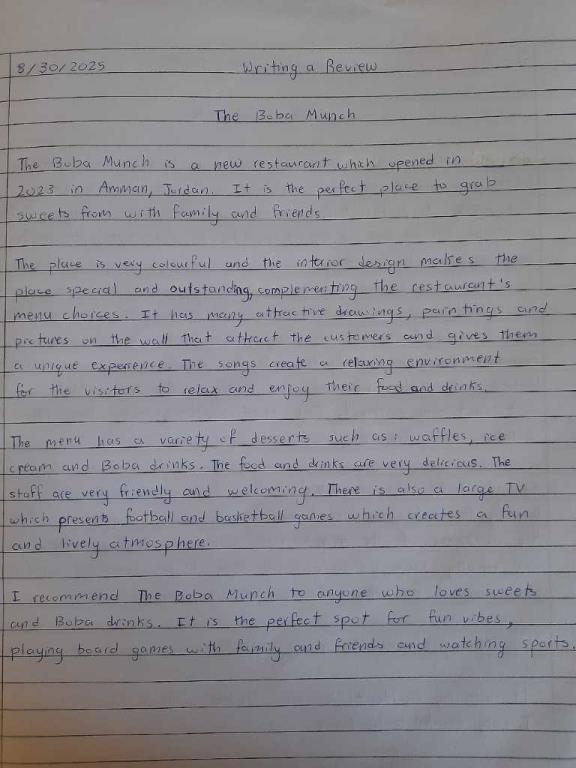 8/30/2025 Writing a Review
The Boba Munch
The Boba Munch is a new restaurant which opened in
2023 in Amman, Jordan. It is the perfect place to grab
sweets from with family and friends.
The place is very colourful and the interior design makes the
place special and outstanding, complementing the restaurant's
menu choices. It has many attractive drawings, paintings and
pictures on the wall that attract the customers and gives them
a unique experience. The songs create a relaxing environment
for the visitors to relax and enjoy their food and drinks.
The menu has a variety of desserts such as: waffles, ice
cream and Boba drinks. The food and drinks are very delicious. The
staff are very friendly and welcoming. There is also a large TV
which presents football and basketball games which creates a fun
and lively atmosphere.
I recommend The Boba Munch to anyone who loves sweets
and Boba drinks. It is the perfect spot for fun vibes,
playing board games with family and friends and watching sports.